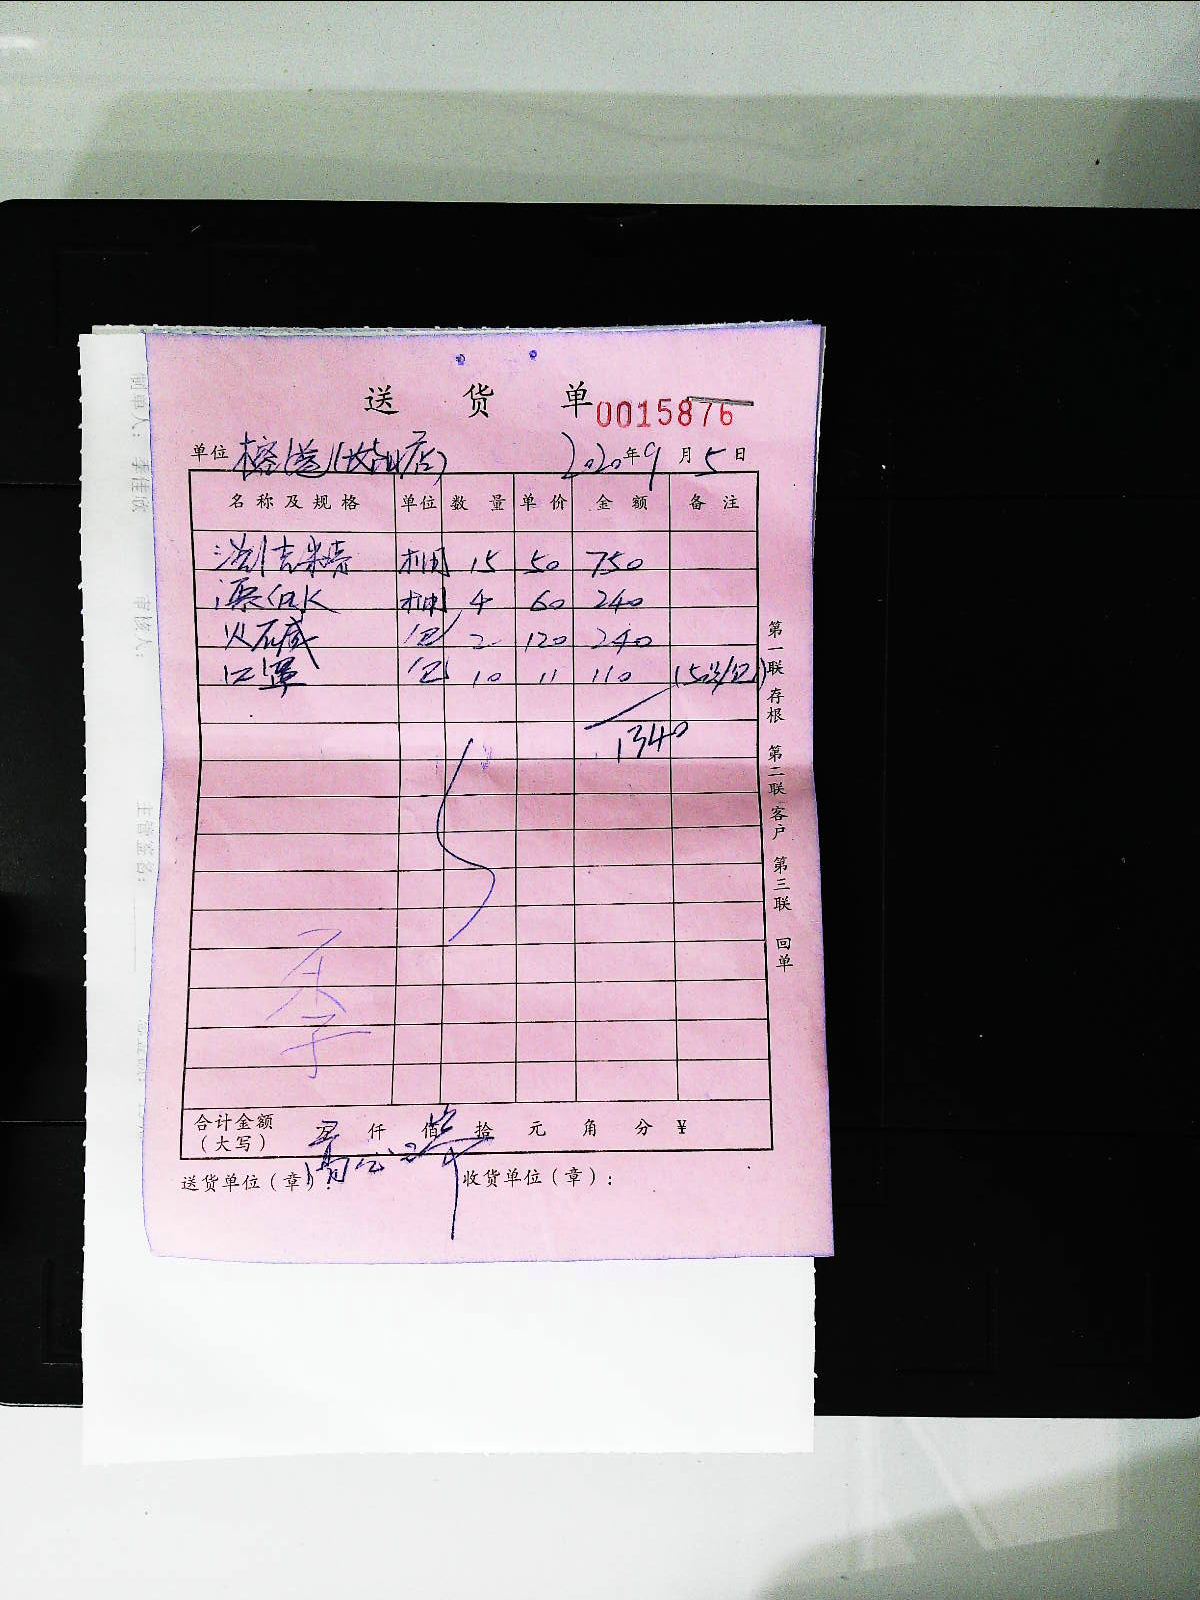 送 货 单 0015876
单位 2020年9月5日
名称及规格 单位 数量 单价 金额 备注
洗洁精 桶 15 50 750
漂白水 桶 4 60 240
火碱 包 2 120 240
口罩 包 10 11 110
1340
第一联 存根 第二联 客户 第三联 回单
合计金额
(大写) 仟 佰 拾 元 角 分 ¥
送货单位(章): 收货单位(章):
审核人:
主管签名: